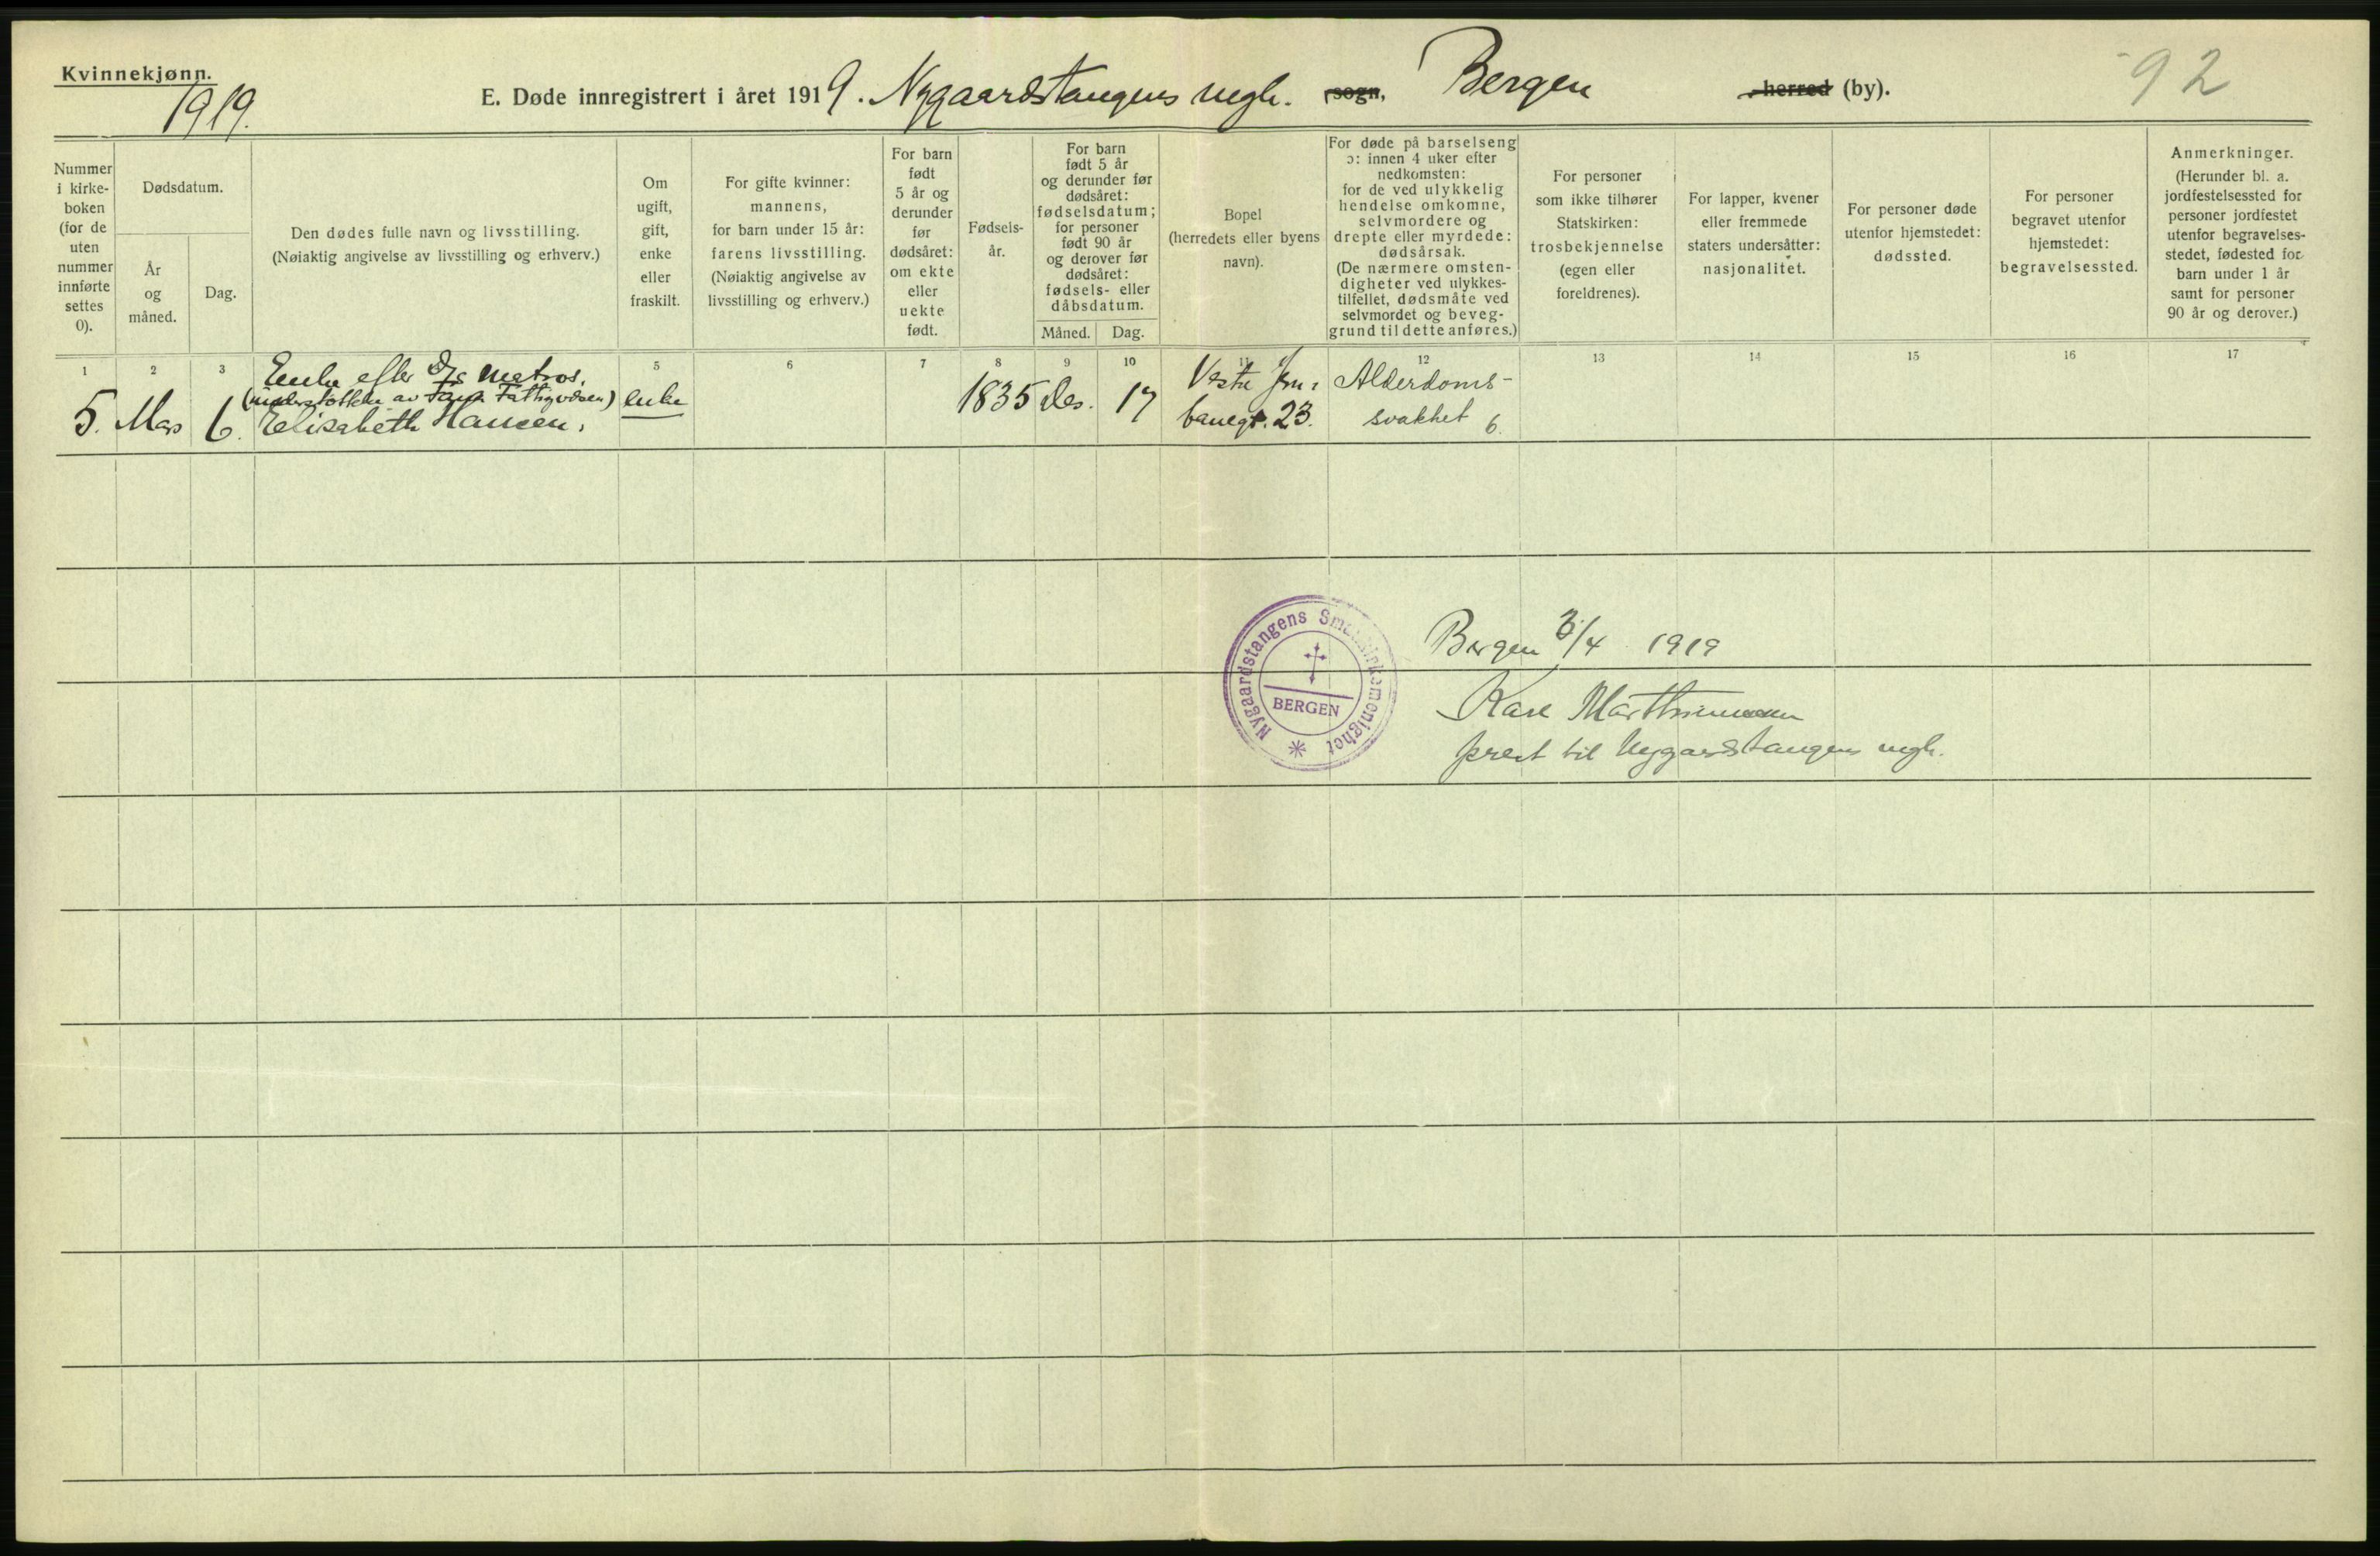 Kvinnekjønn.
1919.
E. Døde innregistrert i året 1919. Nygaardstangens mgh. sogn, Bergen herred (by).
92
Nummer
i kirke-
boken
(for de
uten
nummer
innførte
settes
0).
Dødsdatum.
År
og
måned.
Dag.
Den dødes fulle navn og livsstilling.
(Nøiaktig angivelse av livsstilling og erhverv.)
Om
ugift,
gift,
enke
eller
fraskilt.
For gifte kvinner:
mannens,
for barn under 15 år:
farens livsstilling.
(Nøiaktig angivelse av
livsstilling og erhverv.)
For barn
født
5 år og
derunder
før
dødsåret:
om ekte
eller
uekte
født.
Fødsels-
år.
For barn
født 5 år
og derunder før
dødsåret:
fødselsdatum;
for personer
født 90 år
og derover før
dødsåret:
fødsels- eller
dåbsdatum.
Måned. Dag.
Bopel
(herredets eller byens
navn).
For døde på barselseng
ɔ: innen 4 uker efter
nedkomsten:
for de ved ulykkelig
hendelse omkomne,
selvmordere og
drepte eller myrdede:
dødsårsak.
(De nærmere omsten-
digheter ved ulykkes-
tilfellet, dødsmåte ved
selvmordet og beveg-
grund til dette anføres.)
For personer
som ikke tilhører
Statskirken:
trosbekjennelse
(egen eller
foreldrenes).
For lapper, kvener
eller fremmede
staters undersåtter:
nasjonalitet.
For personer døde
utenfor hjemstedet:
dødssted.
For personer
begravet utenfor
hjemstedet:
begravelsessted.
Anmerkninger.
(Herunder bl. a.
jordfestelsessted for
personer jordfestet
utenfor begravelses-
stedet, fødested for
barn under 1 år
samt for personer
90 år og derover.)
1 2 3 5 6 7 8 9 10 11 12 13 14 15 16 17
Enke efter matros.
av Fattigvæsen)
5. Mars 6. Elisabeth Hansen.
enke
1835 Des. 17
Vestre Jern-
baneg. 23.
Alderdoms-
svakhet 6.
Nygaardstangens Småkirkemenighet
BERGEN
Bergen /4 1919
Karl Marthinussen
prest til Nygaardstangens mgh.